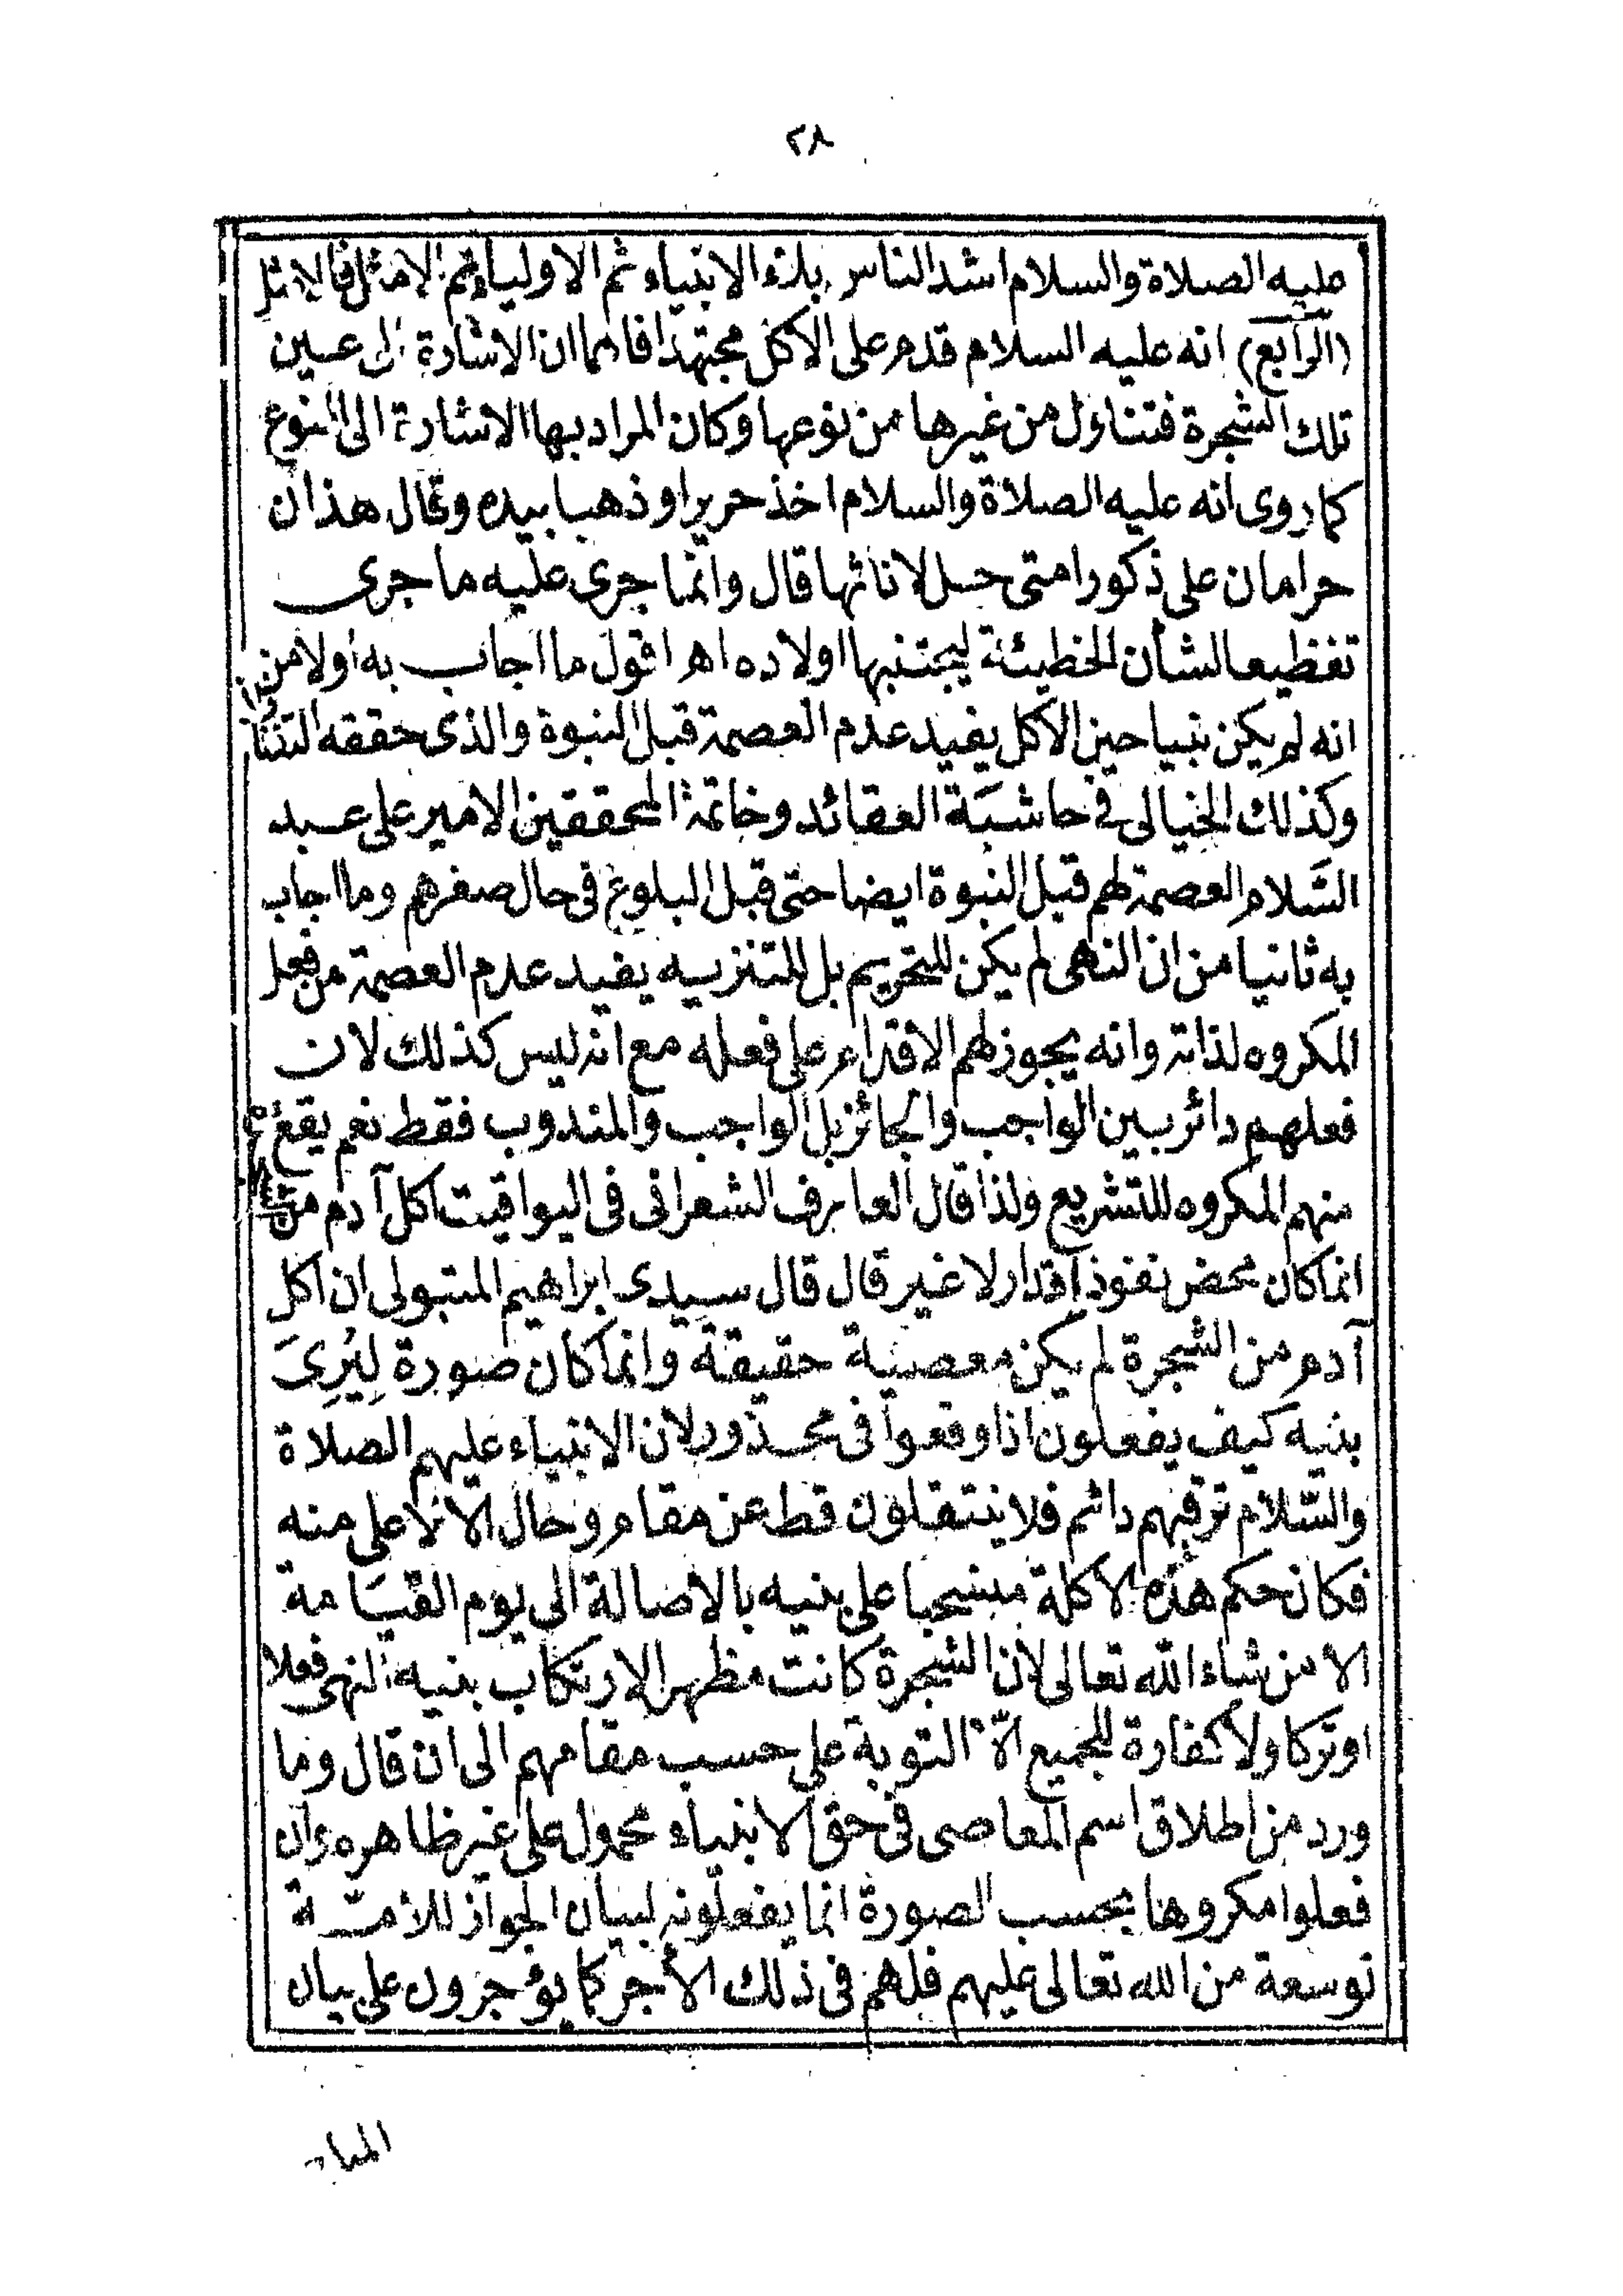 ٢٨
عليه الصلاة والسلام اشد الناس بلاء الانبياء ثم الاولياء ثم الامثل فالامثل
(الرابع) انه عليه السلام قدم على الاكل مجتهدا فاهما ان الاشارة الى عين
تلك الشجرة فتناول من غيرها من نوعها وكان المراد بها الاشارة الى النوع
كما روى انه عليه الصلاة والسلام اخذ حريرا وذهبا بيده وقال هذان
حرامان على ذكور امتى حل لاناثها قال وانما جرى عليه ما جرى
تفظيعا لشأن الخطيئة ليجتنبها اولاده اهـ اقول ما اجاب به اولا من
انه لم يكن نبيا حين الاكل يفيد عدم العصمة قبل النبوة والذى حققه التفتازا
وكذلك الخيالى فى حاشية العقائد وخاتمة المحققين الامير على عبد
السَّلام العصمة لهم قبل النبوة ايضا حتى قبل البلوغ فى حال صغرهم وما اجاب
به ثانيا من ان النهى لم يكن للتحريم بل للتنزيه يفيد عدم العصمة من فعل
المكروه لذاته وانه يجوز لهم الاقدام على فعله مع انه ليس كذلك لان
فعلهم دائر بين الواجب والجائز بل الواجب والمندوب فقط نعم يقع
منهم المكروه للتشريع ولذا قال العارف الشعرانى فى اليواقيت اكل آدم من
انما كان محض نفوذ اقدار لا غير قال قال سيدى ابراهيم المتبولى ان اكل
آدم من الشجرة لم يكن معصية حقيقة وانما كان صورة لِيُرِىَ
بنيه كيف يفعلون اذا وقعوا فى محذور لان الانبياء عليهم الصلاة
والسّلام ترقيهم دائم فلا ينتقلون قط عن مقام وحال الا لاعلى منه
فكان حكم هذه الاكلة منسحبا على بنيه بالاصالة الى يوم القيَامة
الا من شاء الله تعالى لأن الشجرة كانت مظهر الارتكاب بنيه النهى فعلا
او تركا ولا كفارة للجميع الّا التوبة على حسب مقامهم الى ان قال وما
ورد من اطلاق اسم المعاصى فى حق الانبياء محمول على غير ظاهره وان
فعلوا مكروها بحسب الصورة انما يفعلونه لبيان الجواز للامّة
توسعة من الله تعالى عليهم فلهم فى ذلك الأجر كما يؤجرون على بيان